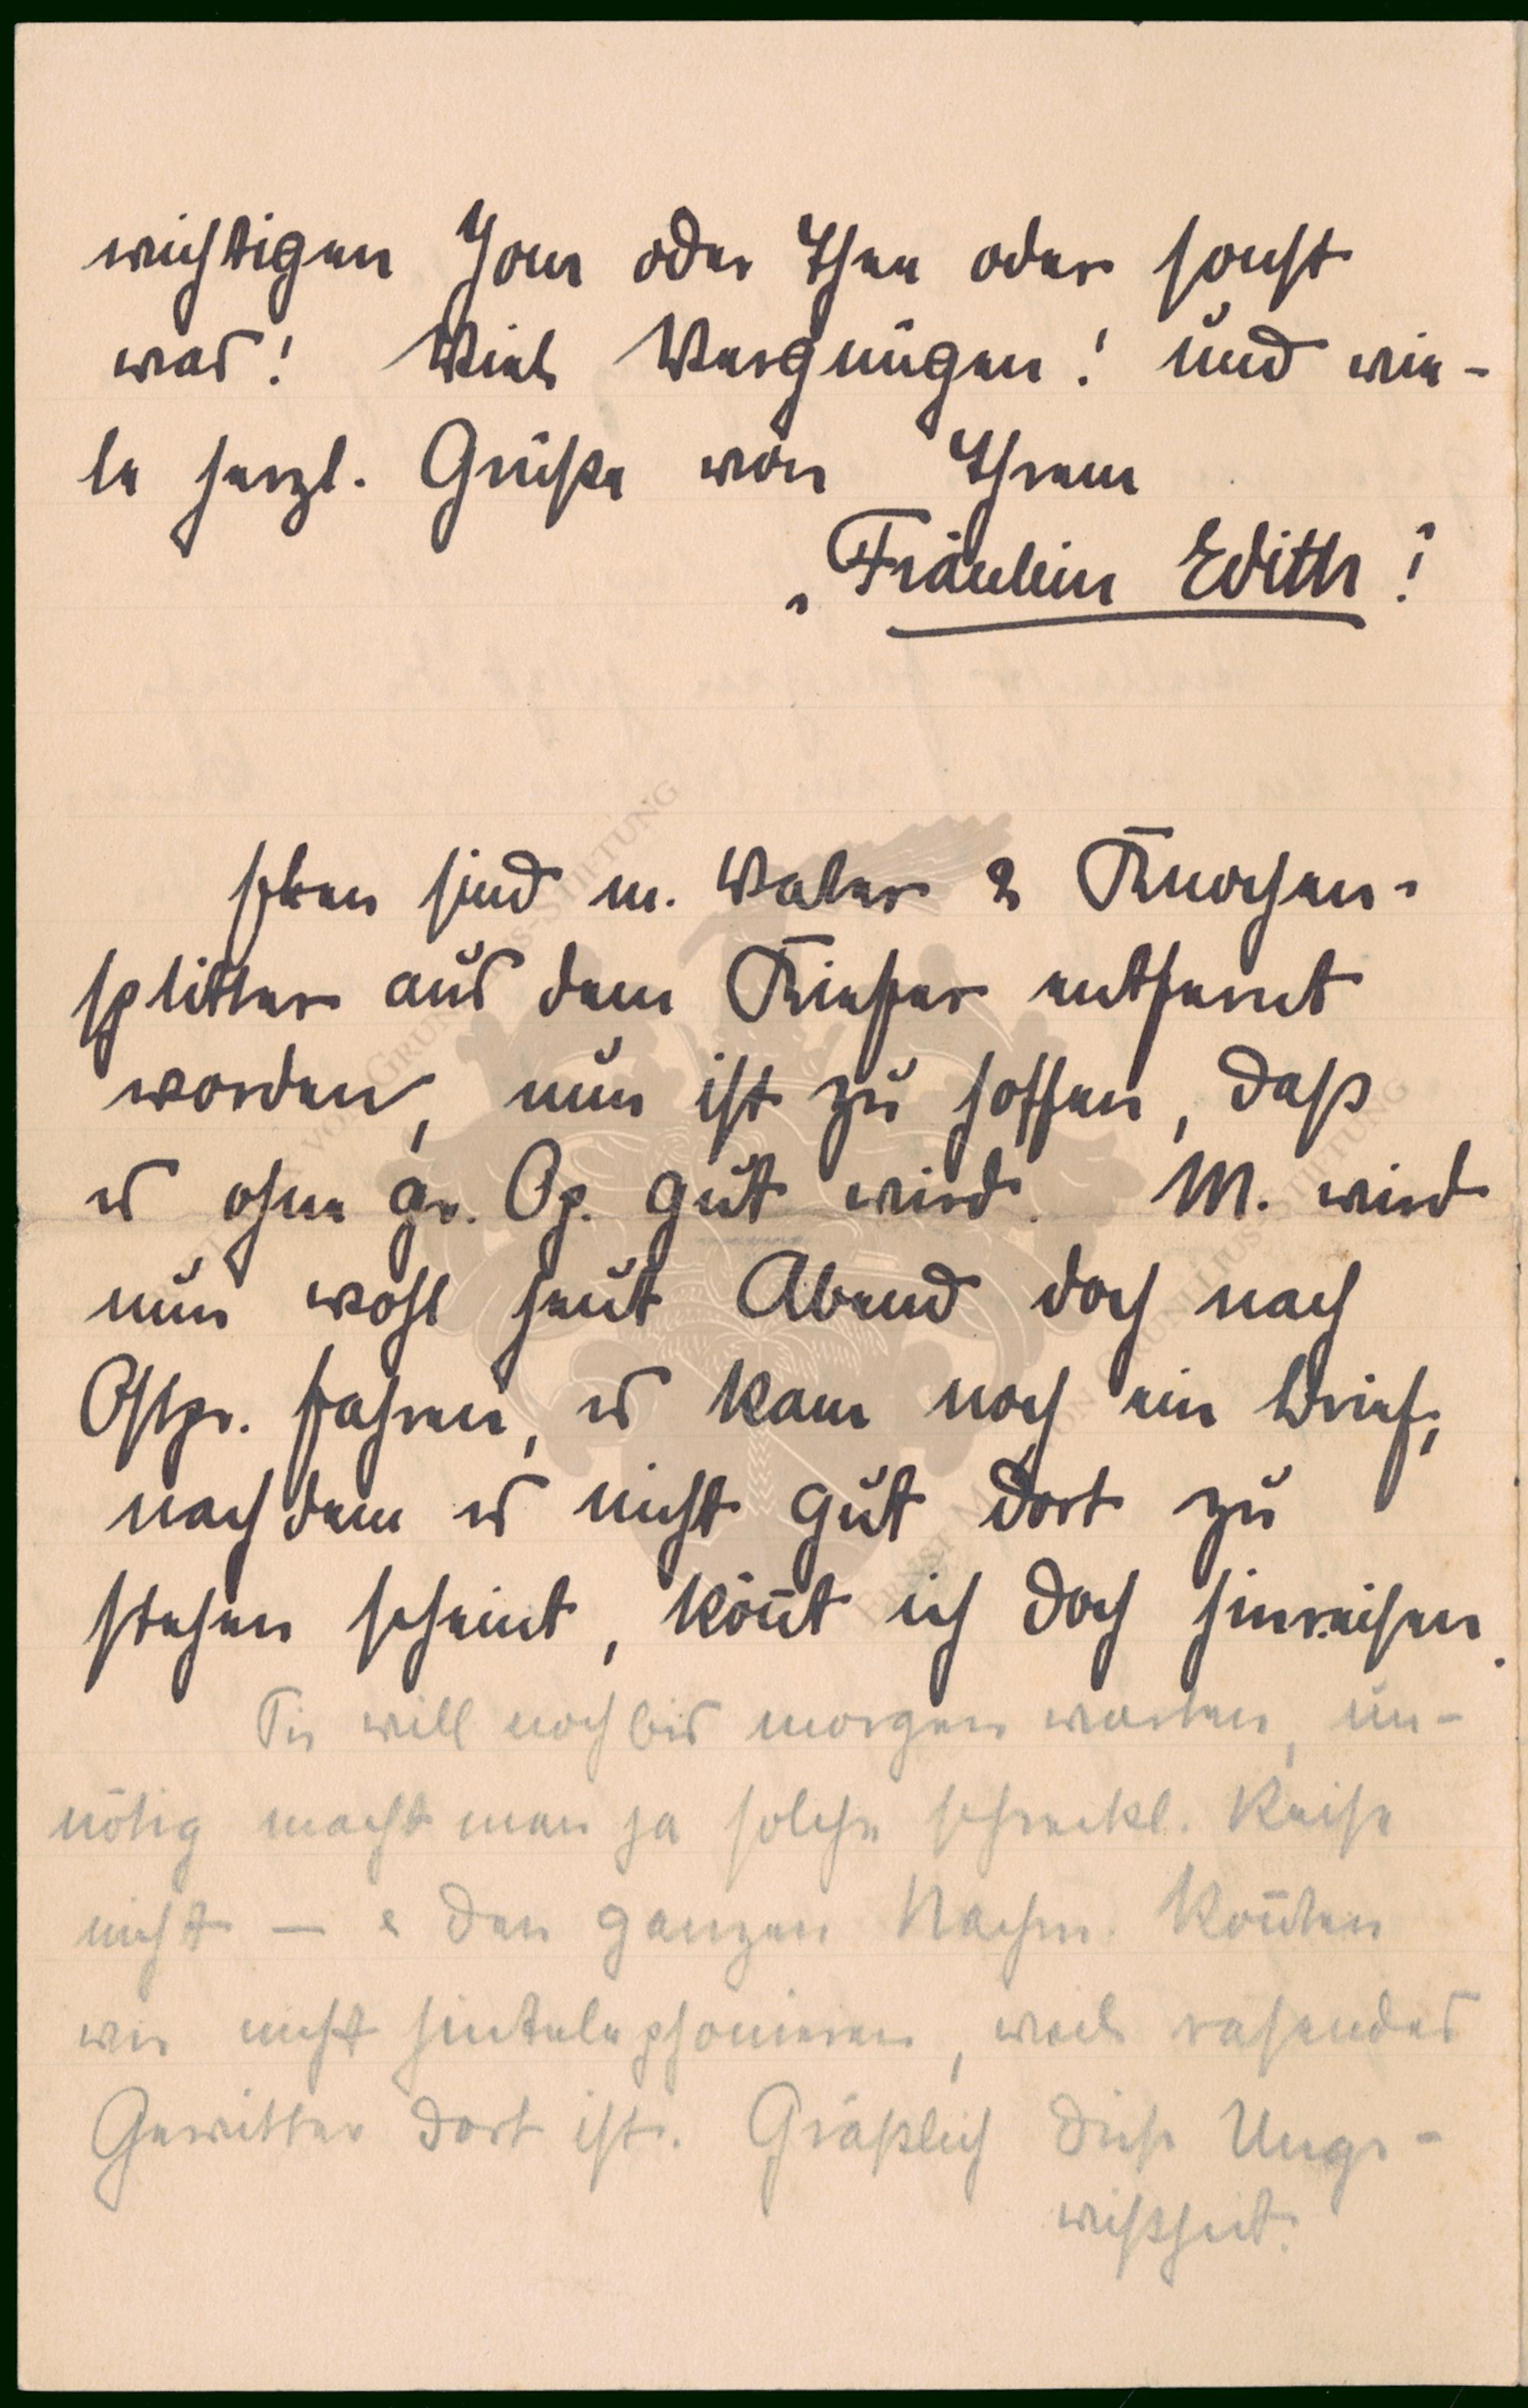 wichtigen Jour oder Thee oder sonst
was! Viel Vergnügen! und vie-
le herzl. Grüße von Ihrem
„Fräulein Edith!
Eben sind m. Vater 2 Knochen-
splitter aus dem Kiefer entfernt
worden, nun ist zu hoffen, daß
es ohne gr. Op. gut wird. M. wird
nun wohl heut Abend doch nach
Ostpr. fahren, es kam noch ein Brief,
nachdem es nicht gut dort zu
stehen scheint, könnt ich doch hinreisen.
Sie will noch bis morgen warten, un-
nötig macht man ja solche schreckl. Reise
nicht – & den ganzen Nachm. konnten
wir nicht hintelephonieren, weil rasendes
Gewitter dort ist. Gräßlich diese Unge-
wißheit.